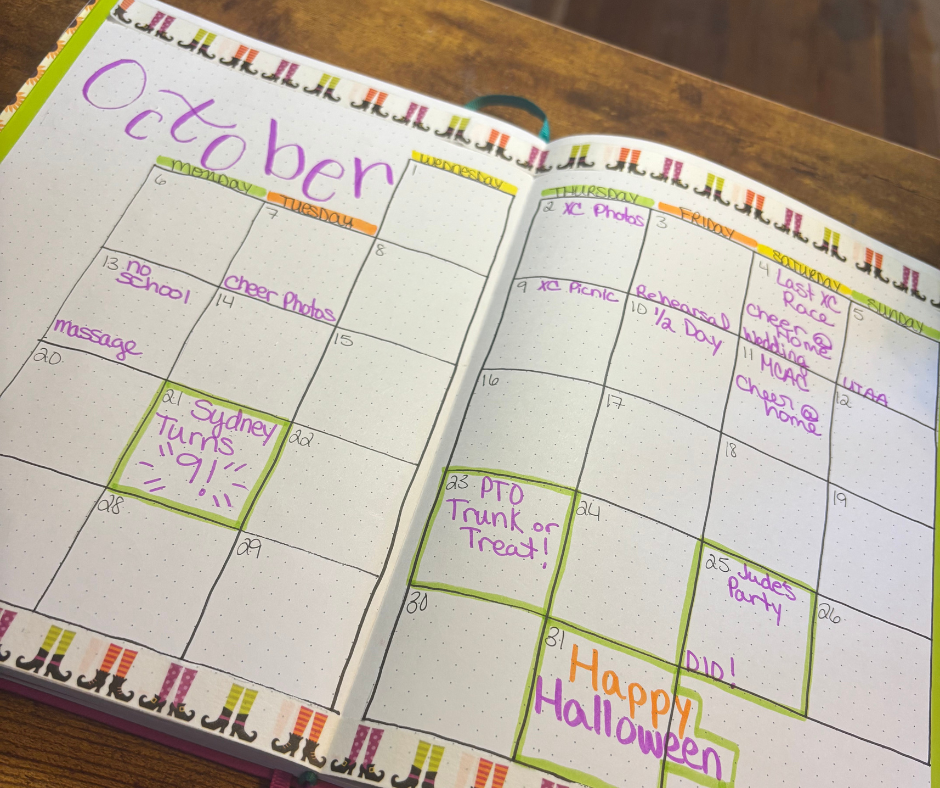 October
MONDAY
TUESDAY
WEDNESDAY
THURSDAY
FRIDAY
SATURDAY
SUNDAY
1
2 XC Photos
3
Rehearsal
4 Last XC
Race
Cheer @
Home
Wedding
5
6
7
Cheer Photos
8
9 XC Picnic
10 1/2 Day
11 MCAC
Cheer @
home
12
13 no
school
massage
14
15
16
17
18
19
20
21 Sydney
Turns
9!
22
23 PTO
Trunk or
Treat!
24
25 Jude's
Party
DID!
26
28
29
30
31
Happy
Halloween